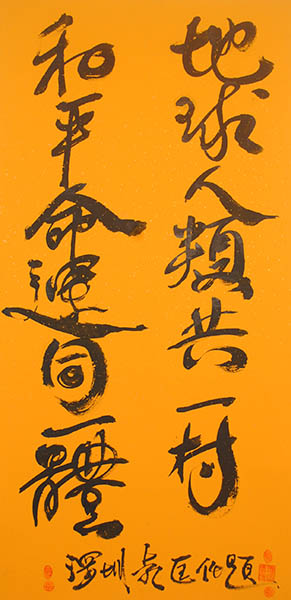 地球人類共一村
和平命運同一體
深圳
題